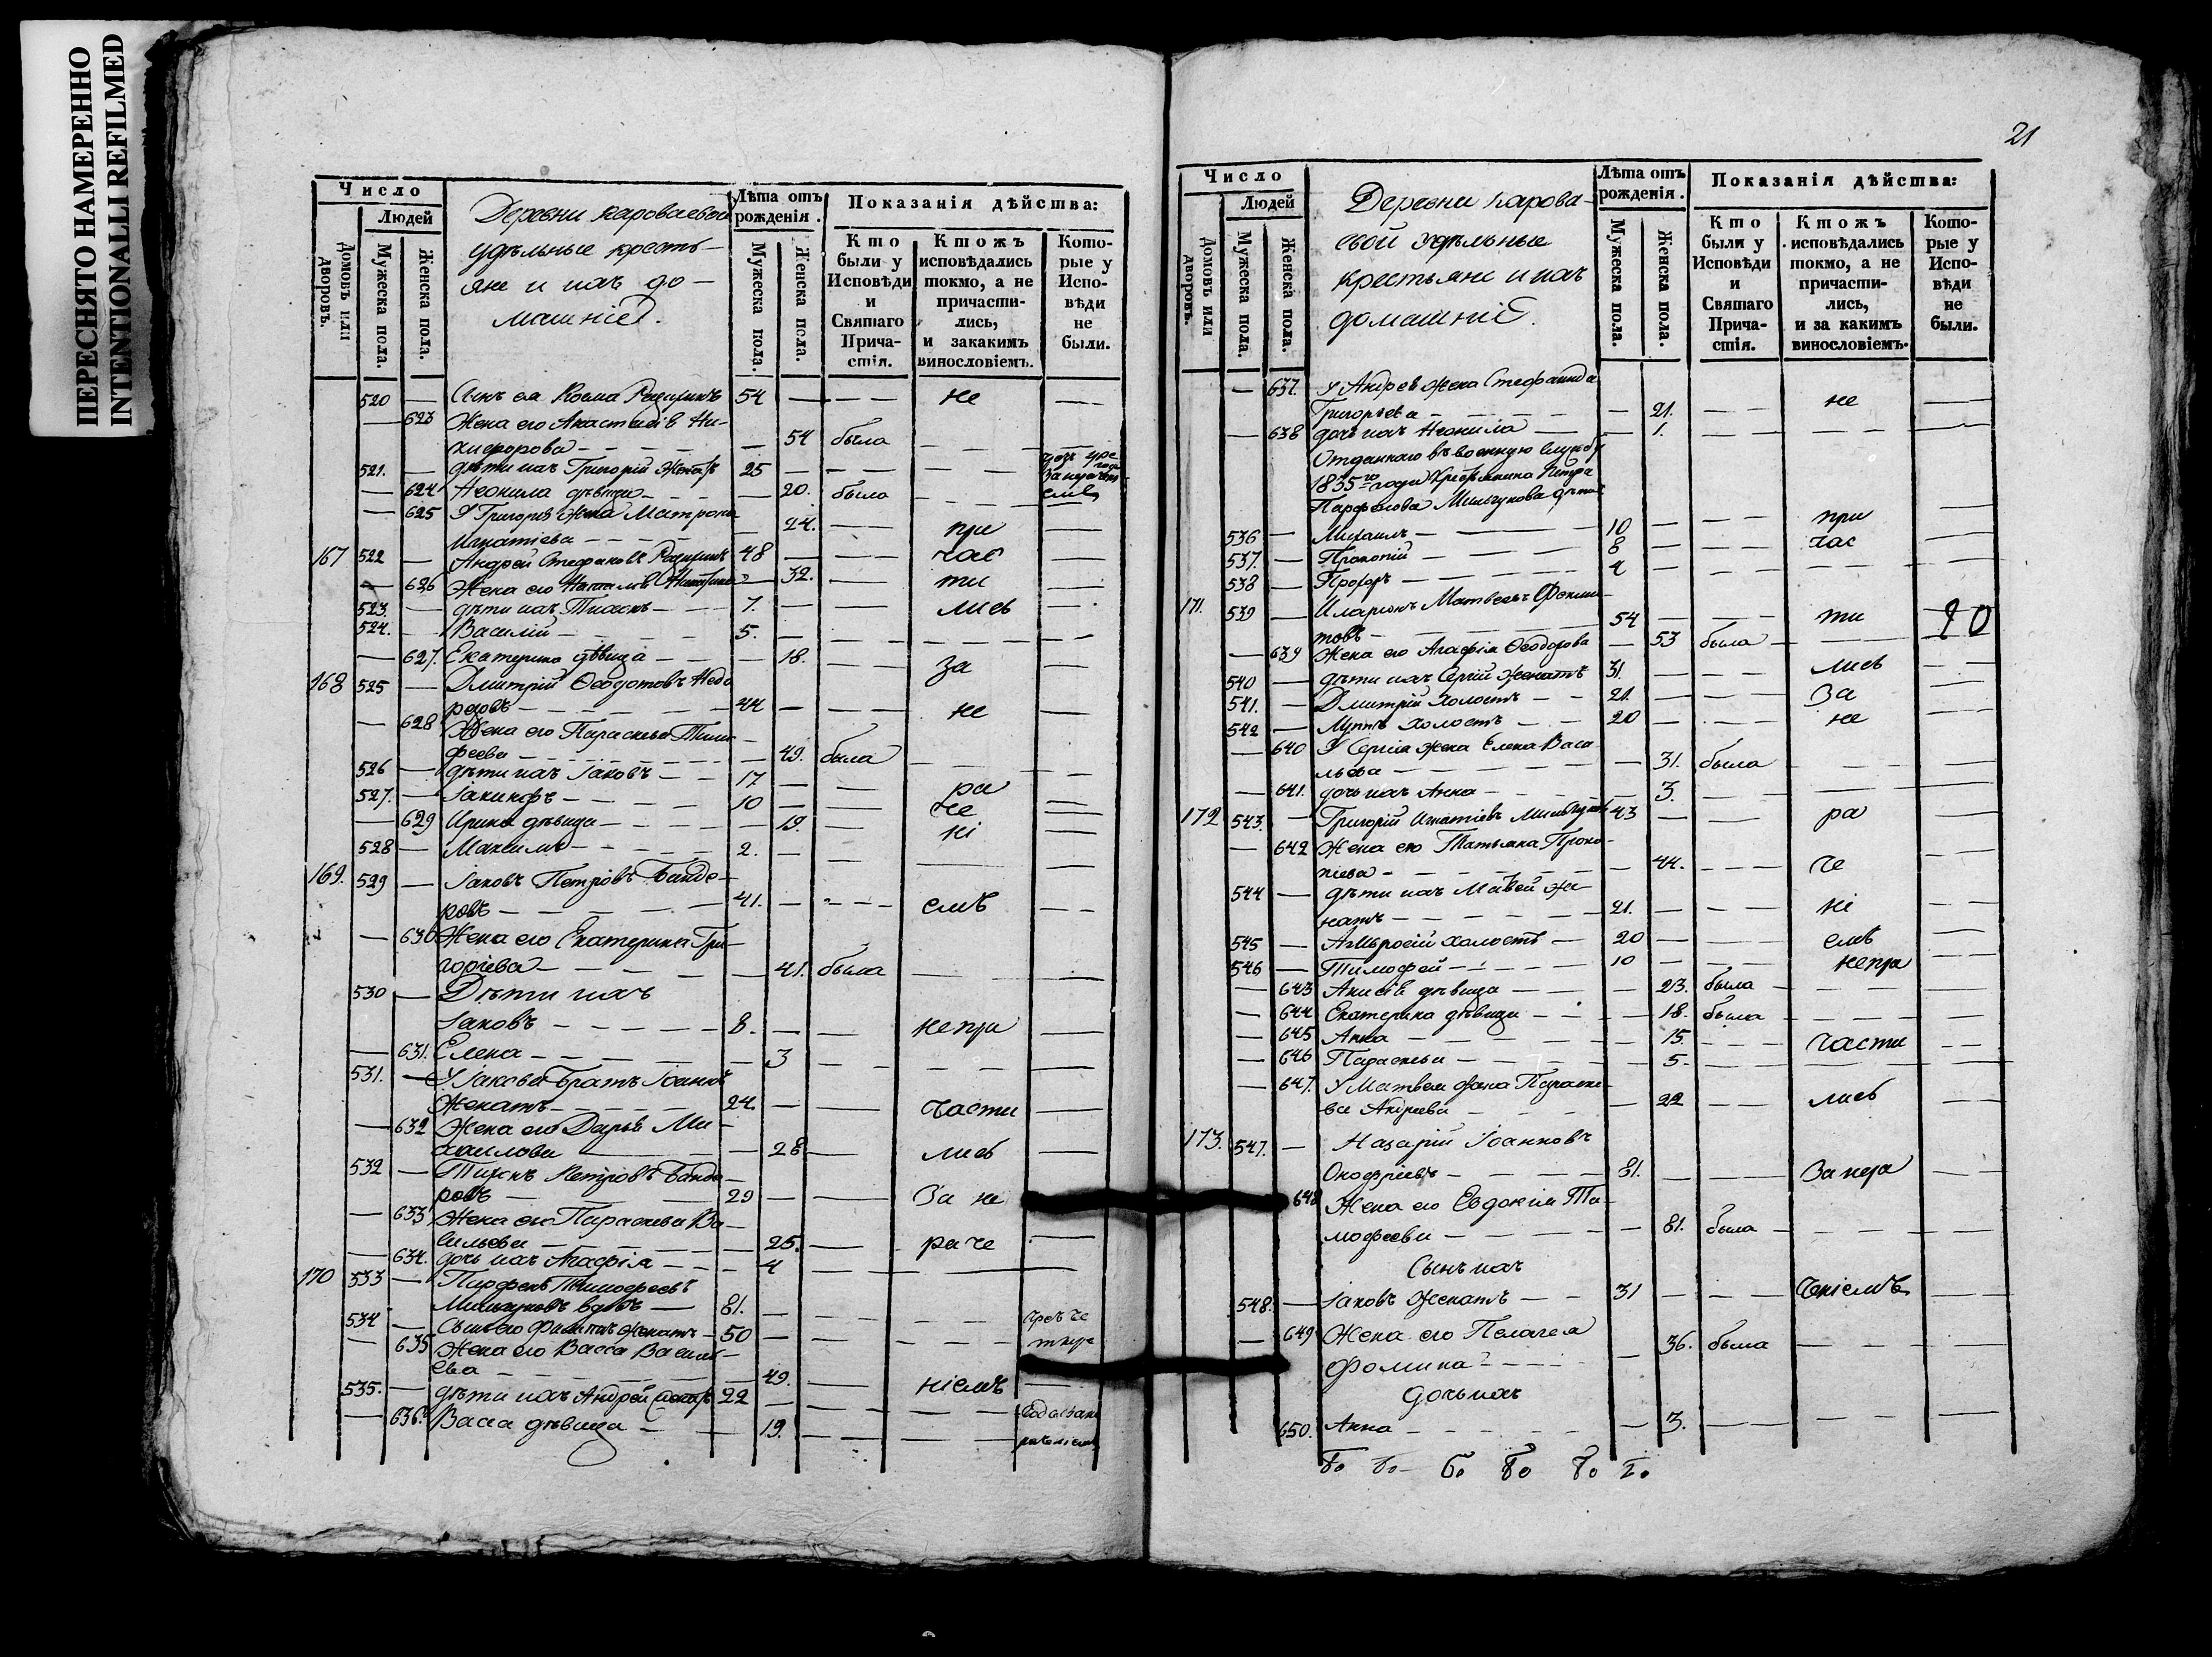 ПЕРЕСНЯТО НАМЕРЕННО
INTENTIONALLI REFILMED
Число
Людей
Домовъ или дворовъ.
Мужеска пола.
Женска пола.
Деревни кароваевой
удѣльные кресть-
яне и ихъ до-
машніе.
Лѣта отъ рожденія.
Мужеска пола.
Женска пола.
Показанія дѣйства:
Кто были у Исповѣди и Святаго Прича-стія.
Ктожъ исповѣдались токмо, а не причасти-лись, и закакимъ винословіемъ.
Кото-рые у Испо-вѣди не были.
520 — Сынъ ея Косма 54 — — не —
— 623 Жена его Анастасія Ни-
кифорова — 54 была — —
521. — дѣти ихъ Григорій женатъ 25 — — —
— 624 Неонила дѣвица — 20. была —
— 625 У Григорія жена Матрона
Игнатіева — 24. — при —
167 522 — Андрей Стефановъ 48 — — час —
— 626 Жена его Наталія — 32. — ти —
523. — дѣти ихъ 7. — — лись —
524. — Василій — 5. — — — —
— 627. Екатерина дѣвица — 18. — за —
168 525 — Дмитрій Ѳеодотовъ
44 — — не —
— 628 Жена его Параскева Тимо-
феева — 49. была — —
526 — дѣти ихъ Іаковъ — 17 — — ра —
527. — Іакинфъ — 10 — — че —
— 629 Ирина дѣвица — 19. — ні —
528 — Максимъ — 2. — — — —
169. 529 — Іаковъ Петровъ Бандо-
ровъ — 41. — — емъ —
— 630 Жена его Екатерина Гри-
горіева — 41. была — —
530 — Дѣти ихъ
Іаковъ — 8. — — непри —
— 631. Елена — 3 — — —
531. — У Іакова братъ Іоаннъ
Женатъ — 24. — — части —
— 632 Жена его Дарья Ми-
хаилова — 28 — лись —
532 — Тихонъ Петровъ Бандо-
ровъ — 29 — — За не
— 633 Жена его Параскева Ва-
сильева — 25. — раче —
— 634. дочь ихъ Агафія — 4 —
170 533 — Парфенъ Тимофеевъ
Мильчуковъ вдовъ — 81. — — —
534 — Сынъ его Филиппъ женатъ — 50 — — —
— 635 Жена его Васса Василь-
ева — 49. — ніемъ —
535. — дѣти ихъ Андрей 22 — — —
— 636. Васса дѣвица — 19. — —
21
Число
Людей
Домовъ или дворовъ.
Мужеска пола.
Женска пола.
Деревни карова-
евой удѣльные
крестьяне и ихъ
домашніе.
Лѣта отъ рожденія.
Мужеска пола.
Женска пола.
Показанія дѣйства:
Кто были у Исповѣди и Святаго Прича-стія.
Ктожъ исповѣдались токмо, а не причасти-лись, и за какимъ винословіемъ.
Кото-рые у Испо-вѣди не были.
— 637. У Андрея жена Стефанида
Григорьева — 21. — не —
— 638 дочь ихъ Неонила — 1. — — —
Отданнаго въ военную службу
1835го года Петра
Парфенова Мильчукова дѣти
536 — Михаилъ — 10 — — при —
537. — Прокопій — 8 — — час —
538 — Прохоръ — 4 — — — —
171. 539 — Иларіонъ Матвеевъ
товъ — 54 — — ти —
— 639 Жена его Агафія Ѳеодорова — 53 была —
540 — дѣти ихъ Сергій женатъ 31. — — лись —
541. — Дмитрій холостъ — 21. — — За —
542 — холостъ — 20 — — не —
— 640 У Сергія жена Елена Васи-
льева — 31. была — —
— 641. дочь ихъ Анна — 3. — — —
172 543. — Григорій Игнатіевъ 43 — — ра —
— 642 Жена его Татьяна Проко-
піева — 44. — че —
544 — дѣти ихъ Матвей же-
натъ — 21. — — ні —
545 — Амвросій холостъ — 20 — — емъ —
546 — Тимофей — 10 — — непри —
— 643 Анисія дѣвица — 23. была — —
— 644 Екатерина дѣвица — 18. была — —
— 645 Анна — 15. — части —
— 646 Параскева — 5. — — —
— 647. У Матвея жена Параске-
ва Андреева — 22 — лись —
173. 547. — Назарій Іоанновъ
81. — — За нера —
648 Жена его Евдокія Ти-
мофеева — 81. была — —
Сынъ ихъ
548. — Іаковъ Женатъ — 31 — — ченіемъ —
— 649 Жена его Пелагея
Фомина — 36. была — —
Дочь ихъ
650. Анна — 3. — — —